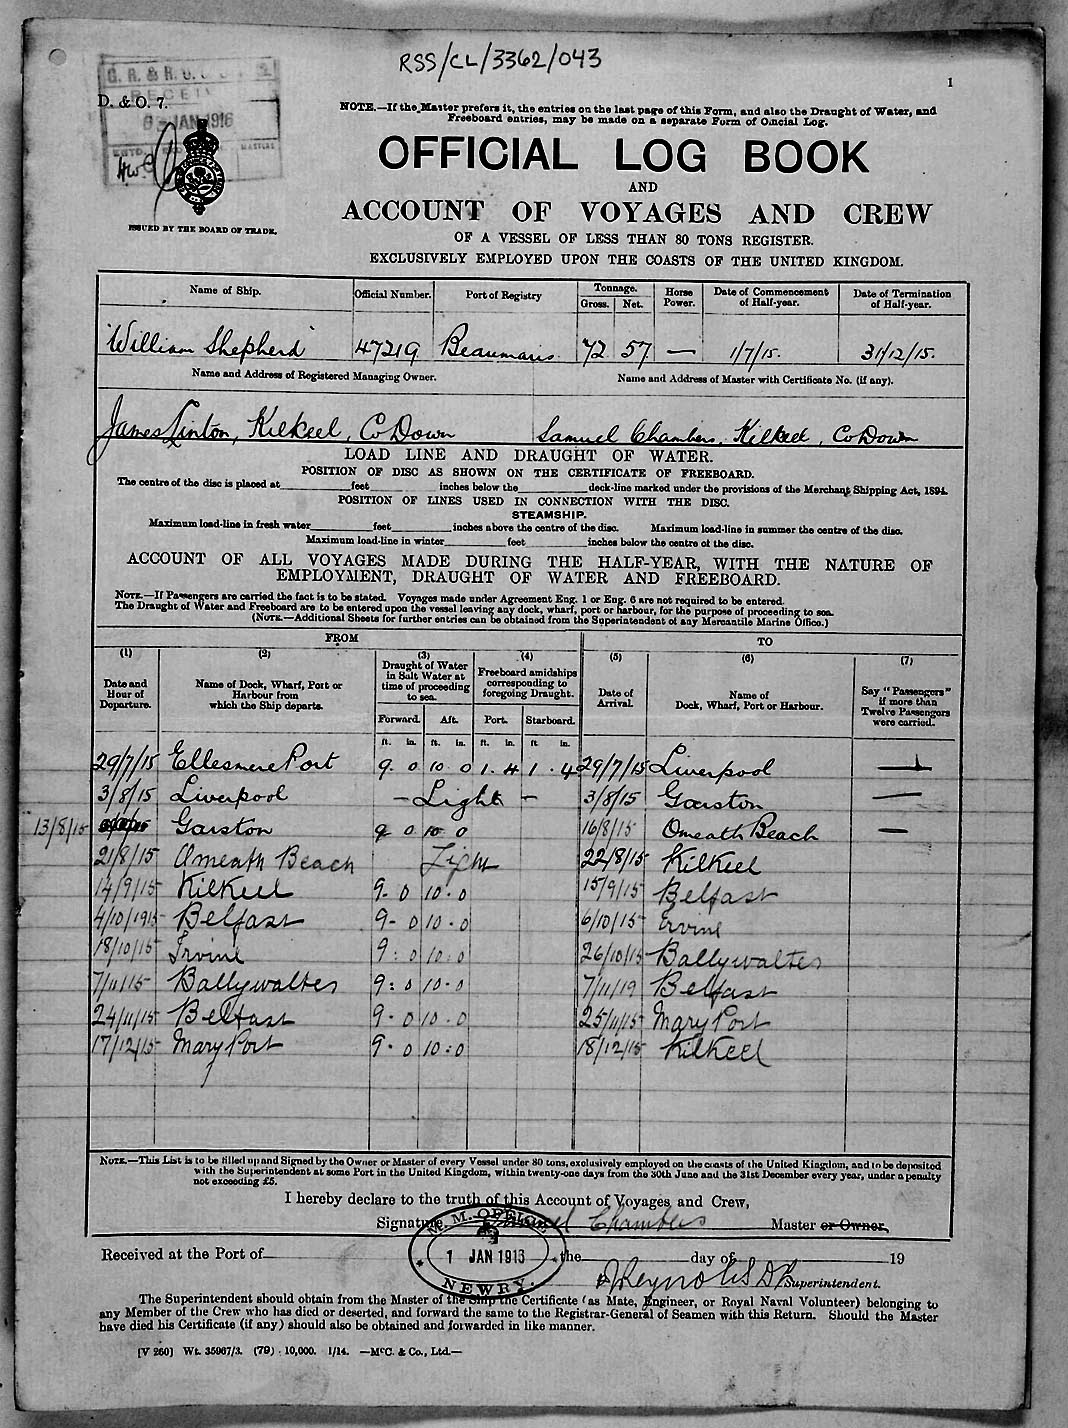 RSS/CL/3362/043
1
G. R. & R. G.
RECEIV
D. & O. 7.
6 JAN 1916
ISSUED BY THE BOARD OF TRADE.
NOTE.—If the Master prefers it, the entries on the last page of this Form, and also the Draught of Water, and
Freeboard entries, may be made on a separate Form of Official Log.
OFFICIAL LOG BOOK
AND
ACCOUNT OF VOYAGES AND CREW
OF A VESSEL OF LESS THAN 80 TONS REGISTER.
EXCLUSIVELY EMPLOYED UPON THE COASTS OF THE UNITED KINGDOM.
Name of Ship. Official Number. Port of Registry Tonnage. Gross. Net. Horse Power. Date of Commencement of Half-year. Date of Termination of Half-year.
"William Shepherd" 47219 Beaumaris 72 57 — 1/7/15. 31/12/15.
Name and Address of Registered Managing Owner. Name and Address of Master with Certificate No. (if any).
James Linton, Kilkeel, Co Down Samuel Chambers, Kilkeel, Co Down
LOAD LINE AND DRAUGHT OF WATER.
POSITION OF DISC AS SHOWN ON THE CERTIFICATE OF FREEBOARD.
The centre of the disc is placed at feet inches below the deck-line marked under the provisions of the Merchant Shipping Act, 1894.
POSITION OF LINES USED IN CONNECTION WITH THE DISC.
STEAMSHIP.
Maximum load-line in fresh water feet inches above the centre of the disc. Maximum load-line in summer the centre of the disc.
Maximum load-line in winter feet inches below the centre of the disc.
ACCOUNT OF ALL VOYAGES MADE DURING THE HALF-YEAR, WITH THE NATURE OF
EMPLOYMENT, DRAUGHT OF WATER AND FREEBOARD.
NOTE.—If Passengers are carried the fact is to be stated. Voyages made under Agreement Eng. 1 or Eng. 6 are not required to be entered.
The Draught of Water and Freeboard are to be entered upon the vessel leaving any dock, wharf, port or harbour, for the purpose of proceeding to sea.
(NOTE.—Additional Sheets for further entries can be obtained from the Superintendent of any Mercantile Marine Office.)
FROM TO
(1) (2) (3) (4) (5) (6) (7)
Date and Hour of Departure. Name of Dock, Wharf, Port or Harbour from which the Ship departs. Draught of Water in Salt Water at time of proceeding to sea. Freeboard amidships corresponding to foregoing Draught. Date of Arrival. Name of Dock, Wharf, Port or Harbour. Say "Passengers" if more than Twelve Passengers were carried.
Forward. Aft. Port. Starboard.
ft. in. ft. in. ft. in. ft. in.
29/7/15 Ellesmere Port 9. 0 10. 0 1. 4 1. 4 29/7/15 Liverpool —
3/8/15 Liverpool — Light — 3/8/15 Garston —
13/8/15 Garston 9 0 10 0 16/8/15 Omeath Beach —
21/8/15 Omeath Beach Light 22/8/15 Kilkeel
14/9/15 Kilkeel 9. 0 10. 0 15/9/15 Belfast
4/10/1915 Belfast 9- 0 10. 0 6/10/15 Irvine
18/10/15 Irvine 9: 0 10: 0 26/10/15 Ballywalter
7/11/15 Ballywalter 9: 0 10. 0 7/11/19 Belfast
24/11/15 Belfast 9. 0 10. 0 25/11/15 Mary Port
17/12/15 Mary Port 9. 0 10: 0 18/12/15 Kilkeel
NOTE.—This List is to be filled up and Signed by the Owner or Master of every Vessel under 80 tons, exclusively employed on the coasts of the United Kingdom, and to be deposited
with the Superintendent at some Port in the United Kingdom, within twenty-one days from the 30th June and the 31st December every year, under a penalty
not exceeding £5.
I hereby declare to the truth of this Account of Voyages and Crew,
Signature Samuel Chambers Master or Owner.
M. M. OFFICE
1 JAN 1916
NEWRY.
Received at the Port of the day of 19
Reynolds Superintendent.
The Superintendent should obtain from the Master of the Ship the Certificate (as Mate, Engineer, or Royal Naval Volunteer) belonging to
any Member of the Crew who has died or deserted, and forward the same to the Registrar-General of Seamen with this Return. Should the Master
have died his Certificate (if any) should also be obtained and forwarded in like manner.
[V 260] Wt. 35967/3. (79) . 10,000. 1/14. —McC. & Co., Ltd.—